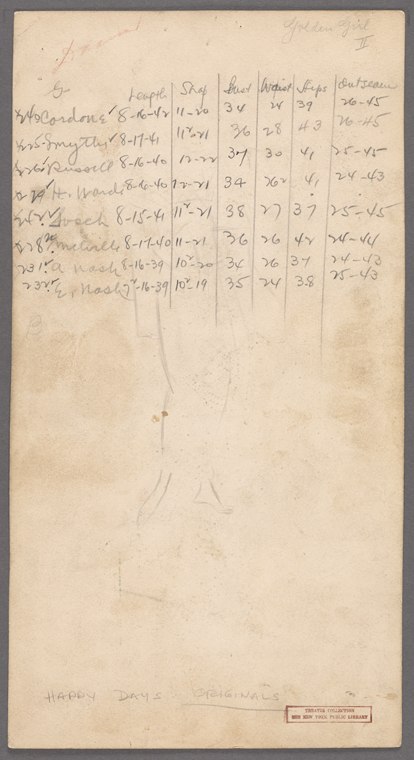 Golden Girl
II
G Length Shop Bust Waist Hips Outseam
243 Cordone 8-16-42 11-20 34 24 39 26-45
225 Smythe 8-17-41 11½-21 36 28 43 26-45
226 Russell 8-16-40 12-22 37 30 41 25-45
H. Ward 8-16-40 12-21 34 26½ 41 24-43
242 8-15-41 11½-21 38 27 37 25-45
228 Melville 8-17-40 11-21 36 26 42 24-44
231 A. Nash 8-16-39 10½-20 34 26 37 24-43
232 E. Nash 7½-16-39 10½-19 35 24 38 25-43
HAPPY DAYS ORIGINALS
THEATRE COLLECTION
THE NEW YORK PUBLIC LIBRARY